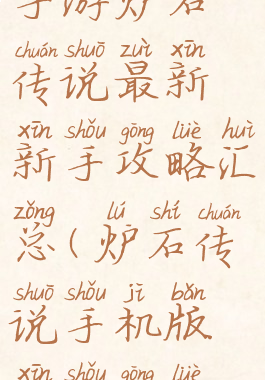 手游炉石
chuán shuō zuì xīn
传说最新
xīn shǒu gōng lüè huì
新手攻略汇
zǒng lú shí chuán
总（炉石传
shuō shǒu jī bǎn
说手机版
xīn shǒu gōng lüè